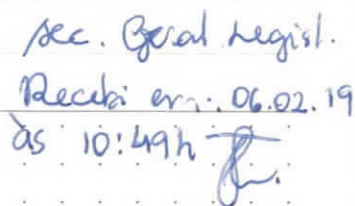 Sec. Geral Legisl.
Recebi em: 06.02.19
às 10:49h